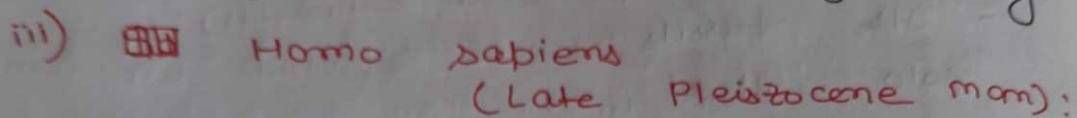 iii) Homo sapiens
(Late Pleistocene man):